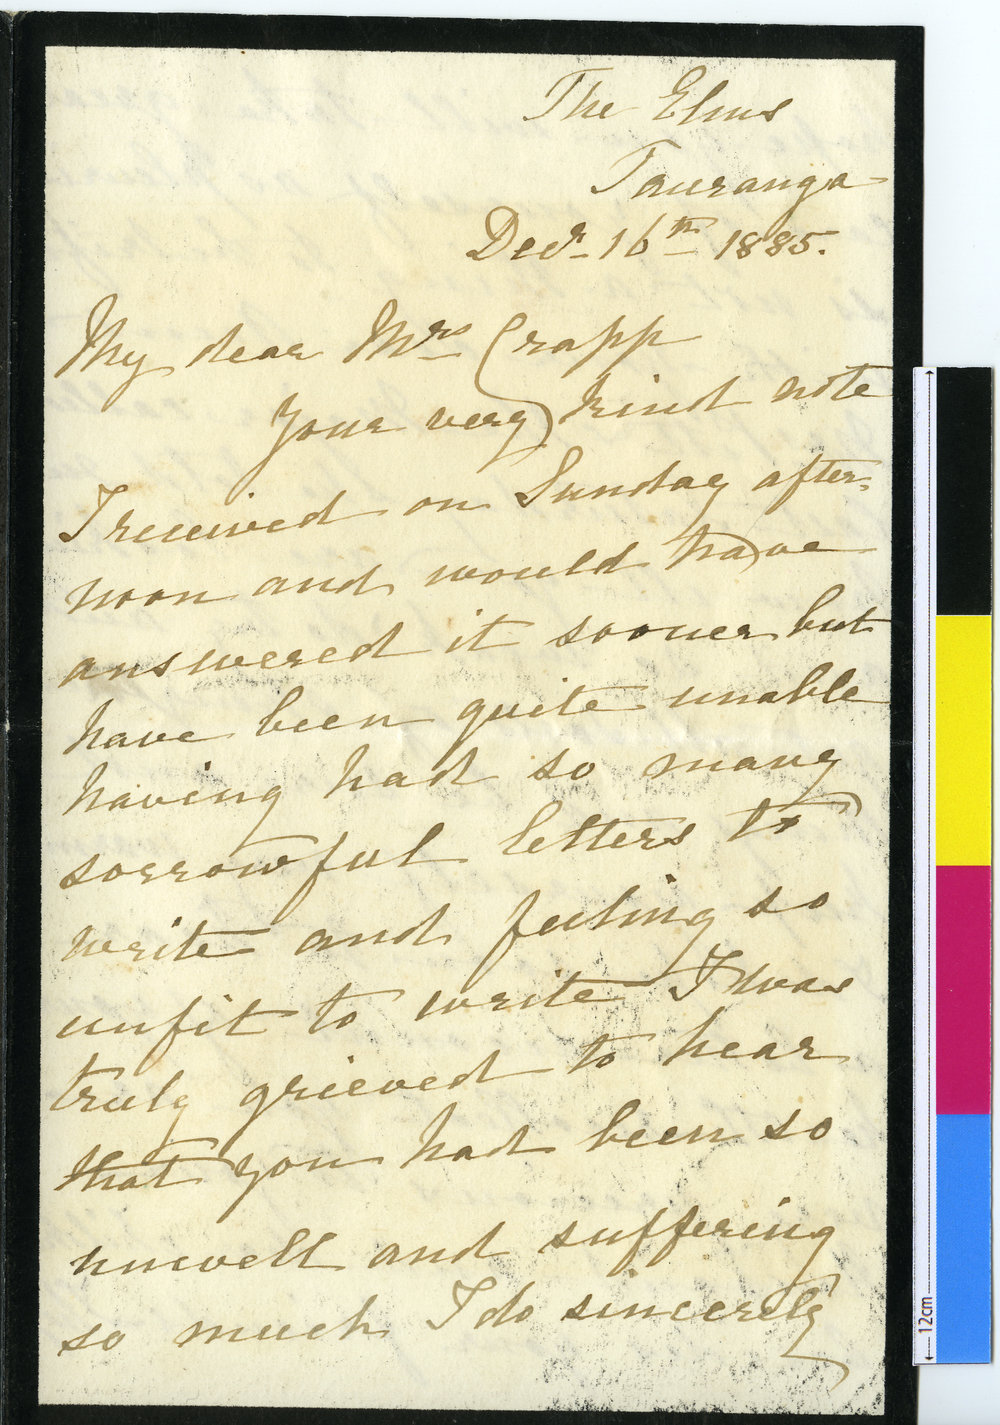 The Elms
Tauranga
Decr. 16th 1885.
My dear Mrs Crapp
Your very kind note
I received on Sunday after-
noon and would have
answered it sooner but
have been quite unable
having had so many
sorrowful letters to
write and feeling so
unfit to write I was
truly grieved to hear
that you had been so
unwell and suffering
so much I do sincerely
12cm